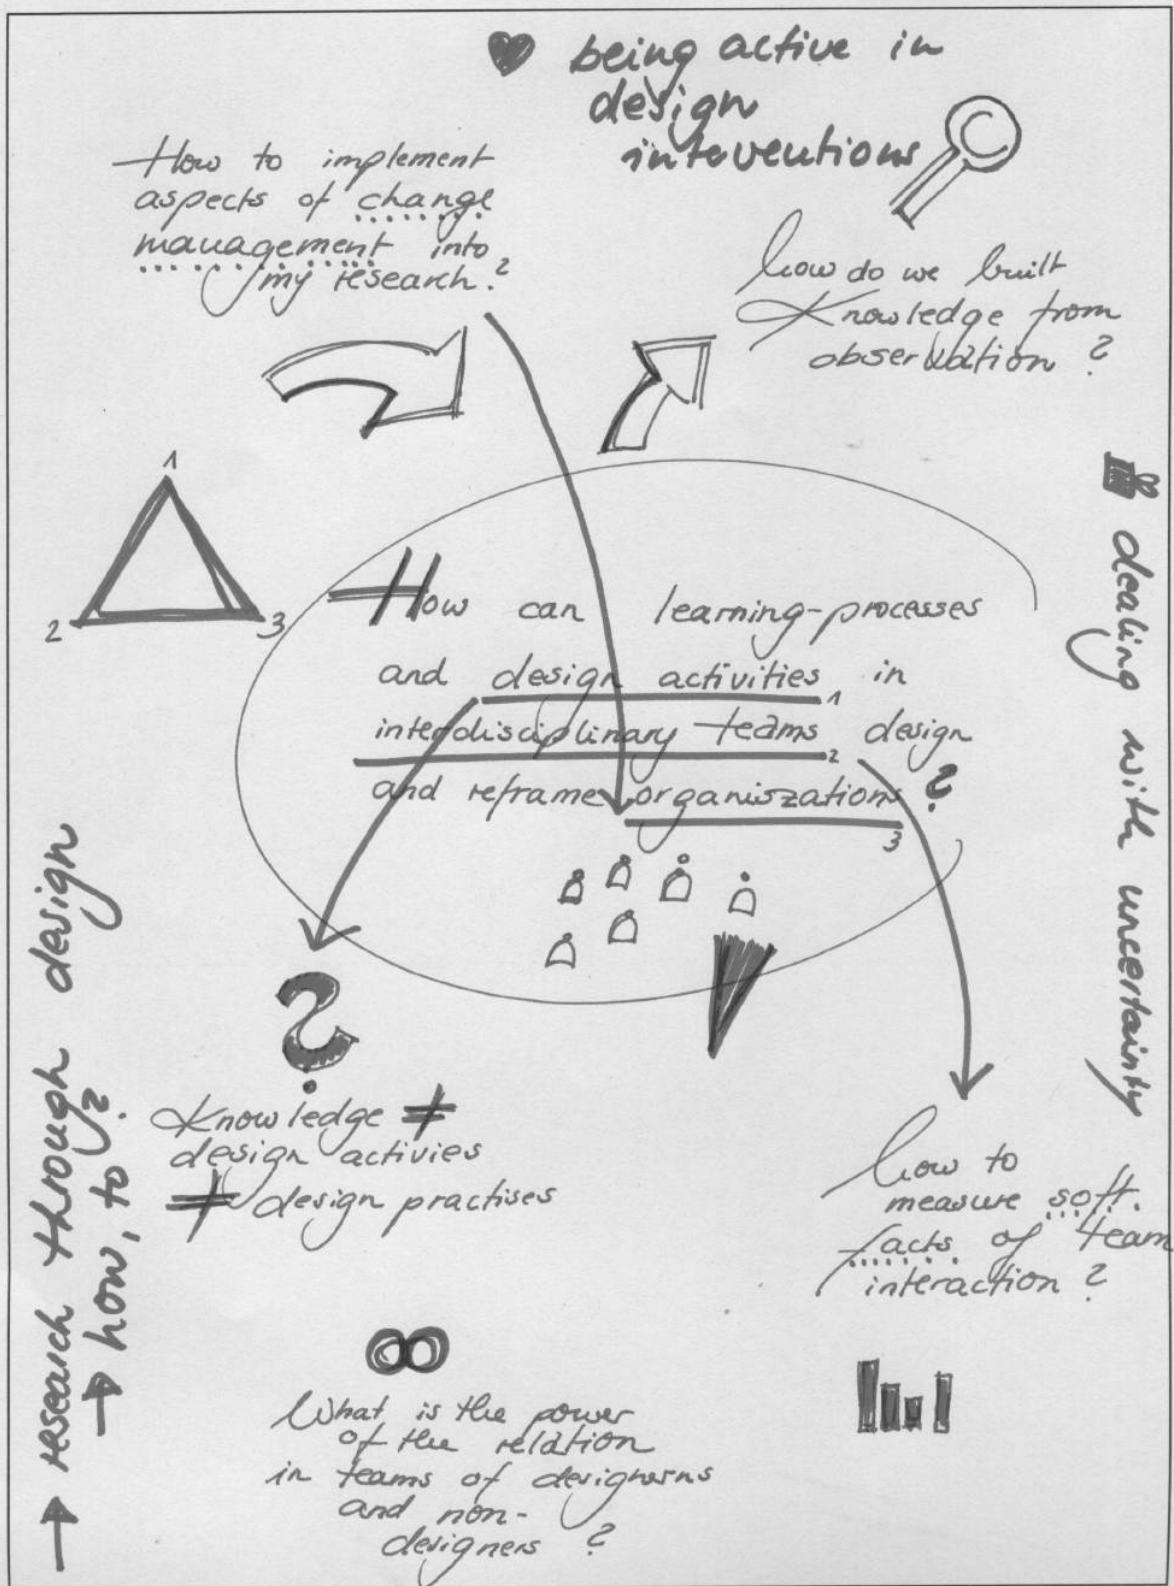 being active in
design
interventions
How to implement
aspects of change
management into
my research?
how do we built
Knowledge from
observation?
1
2
3
How can learning-processes
and design activities in
1
interdisciplinary teams design
2
and reframe organiszations?
3
dealing with uncertainty
?
Knowledge ≠
design activies
≠ design practises
how to
measure soft.
facts of team
interaction?
What is the power
of the relation
in teams of designerns
and non-
designers?
→ research through design
→ how, to?